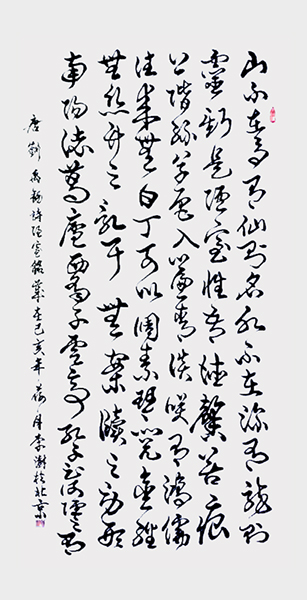 山不在高有仙則名水不在深有龍則
靈斯是陋室惟吾德馨苔痕
上階綠草色入簾青談笑有鴻儒
往來無白丁可以調素琴閱金經
無絲竹之亂耳無案牘之勞形
南陽諸葛廬西蜀子雲亭孔子云何陋之有
唐劉禹錫詩陋室銘歲在己亥年荷月李於北京